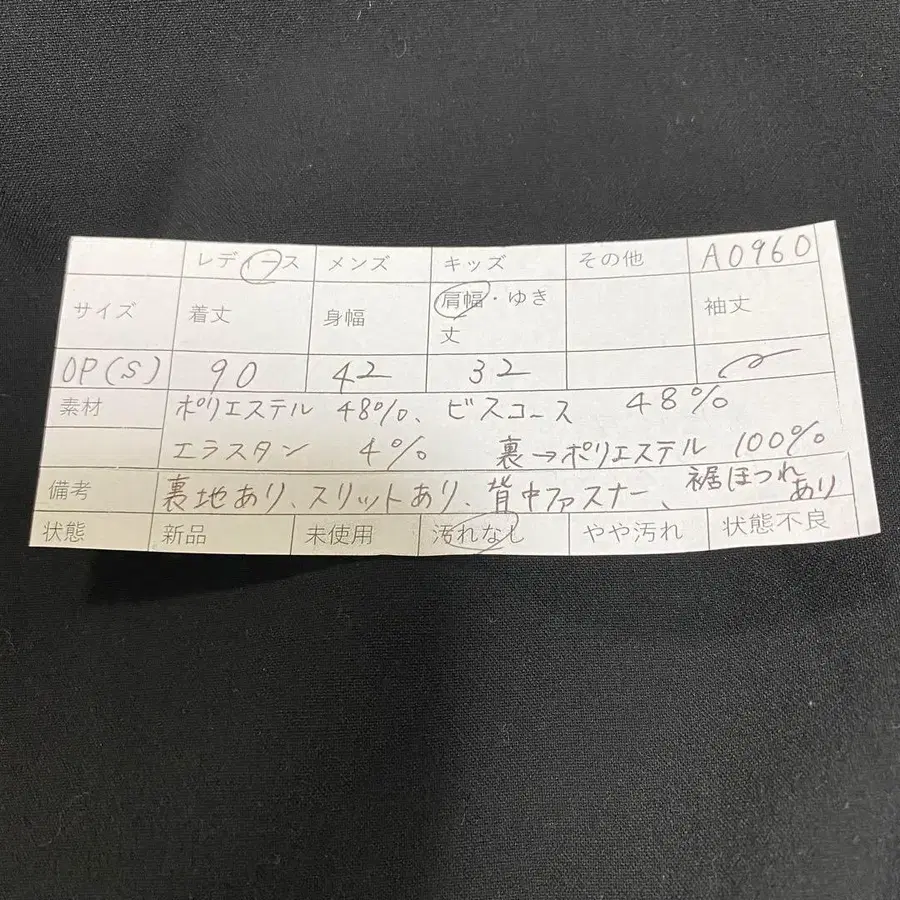 レディース メンズ キッズ その他 A0960
サイズ 着丈 身幅 肩幅・ゆき丈 袖丈
OP(S) 90 42 32
素材 ポリエステル 48%、ビスコース 48%
エラスタン 4% 裏→ポリエステル 100%
備考 裏地あり、スリットあり、背中ファスナー、裾ほつれあり
状態 新品 未使用 汚れなし やや汚れ 状態不良